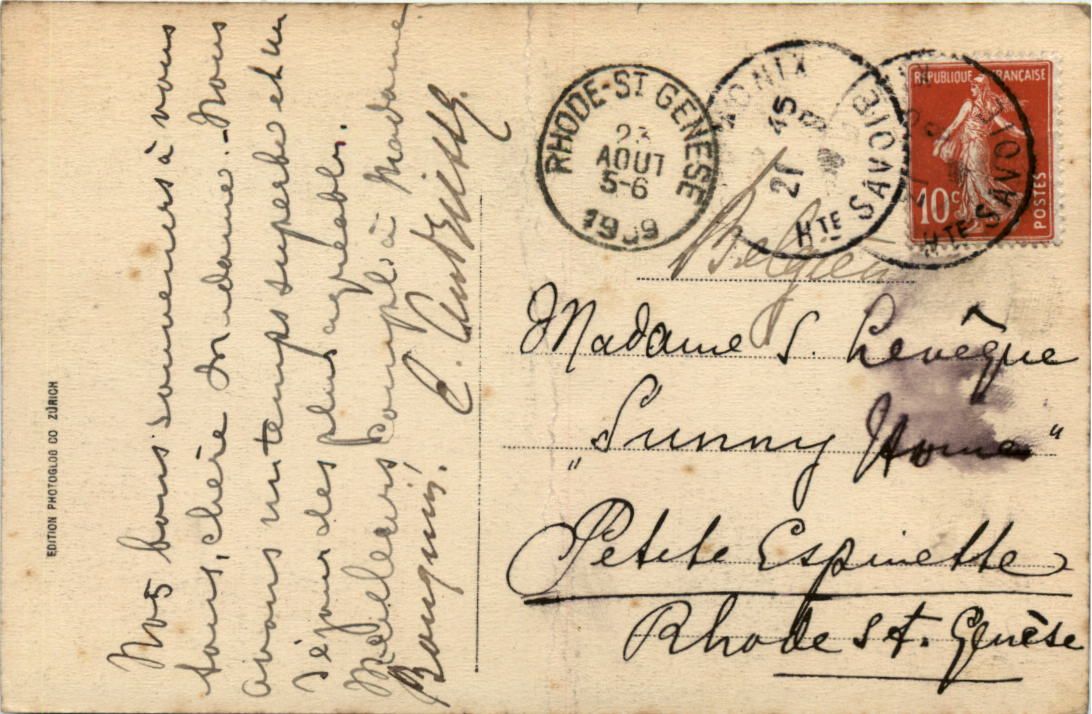 Nos bons souvenirs à vous
tous, chère Madame. - Nous
avons un temps superbe et un
séjour des plus agréables.
Meilleurs compl. à Madame
C.
EDITION PHOTOGLOB CO ZÜRICH
RHODE-ST GENESE
23
AOUT
5-6
1909
MONIX
21
45
HTE SAVOIE
HTE SAVOIE
REPUBLIQUE FRANÇAISE
10c
POSTES
Belgien
Madame S. Levêque
„Sunny Home"
Petite Espinette
Rhode St. Genèse